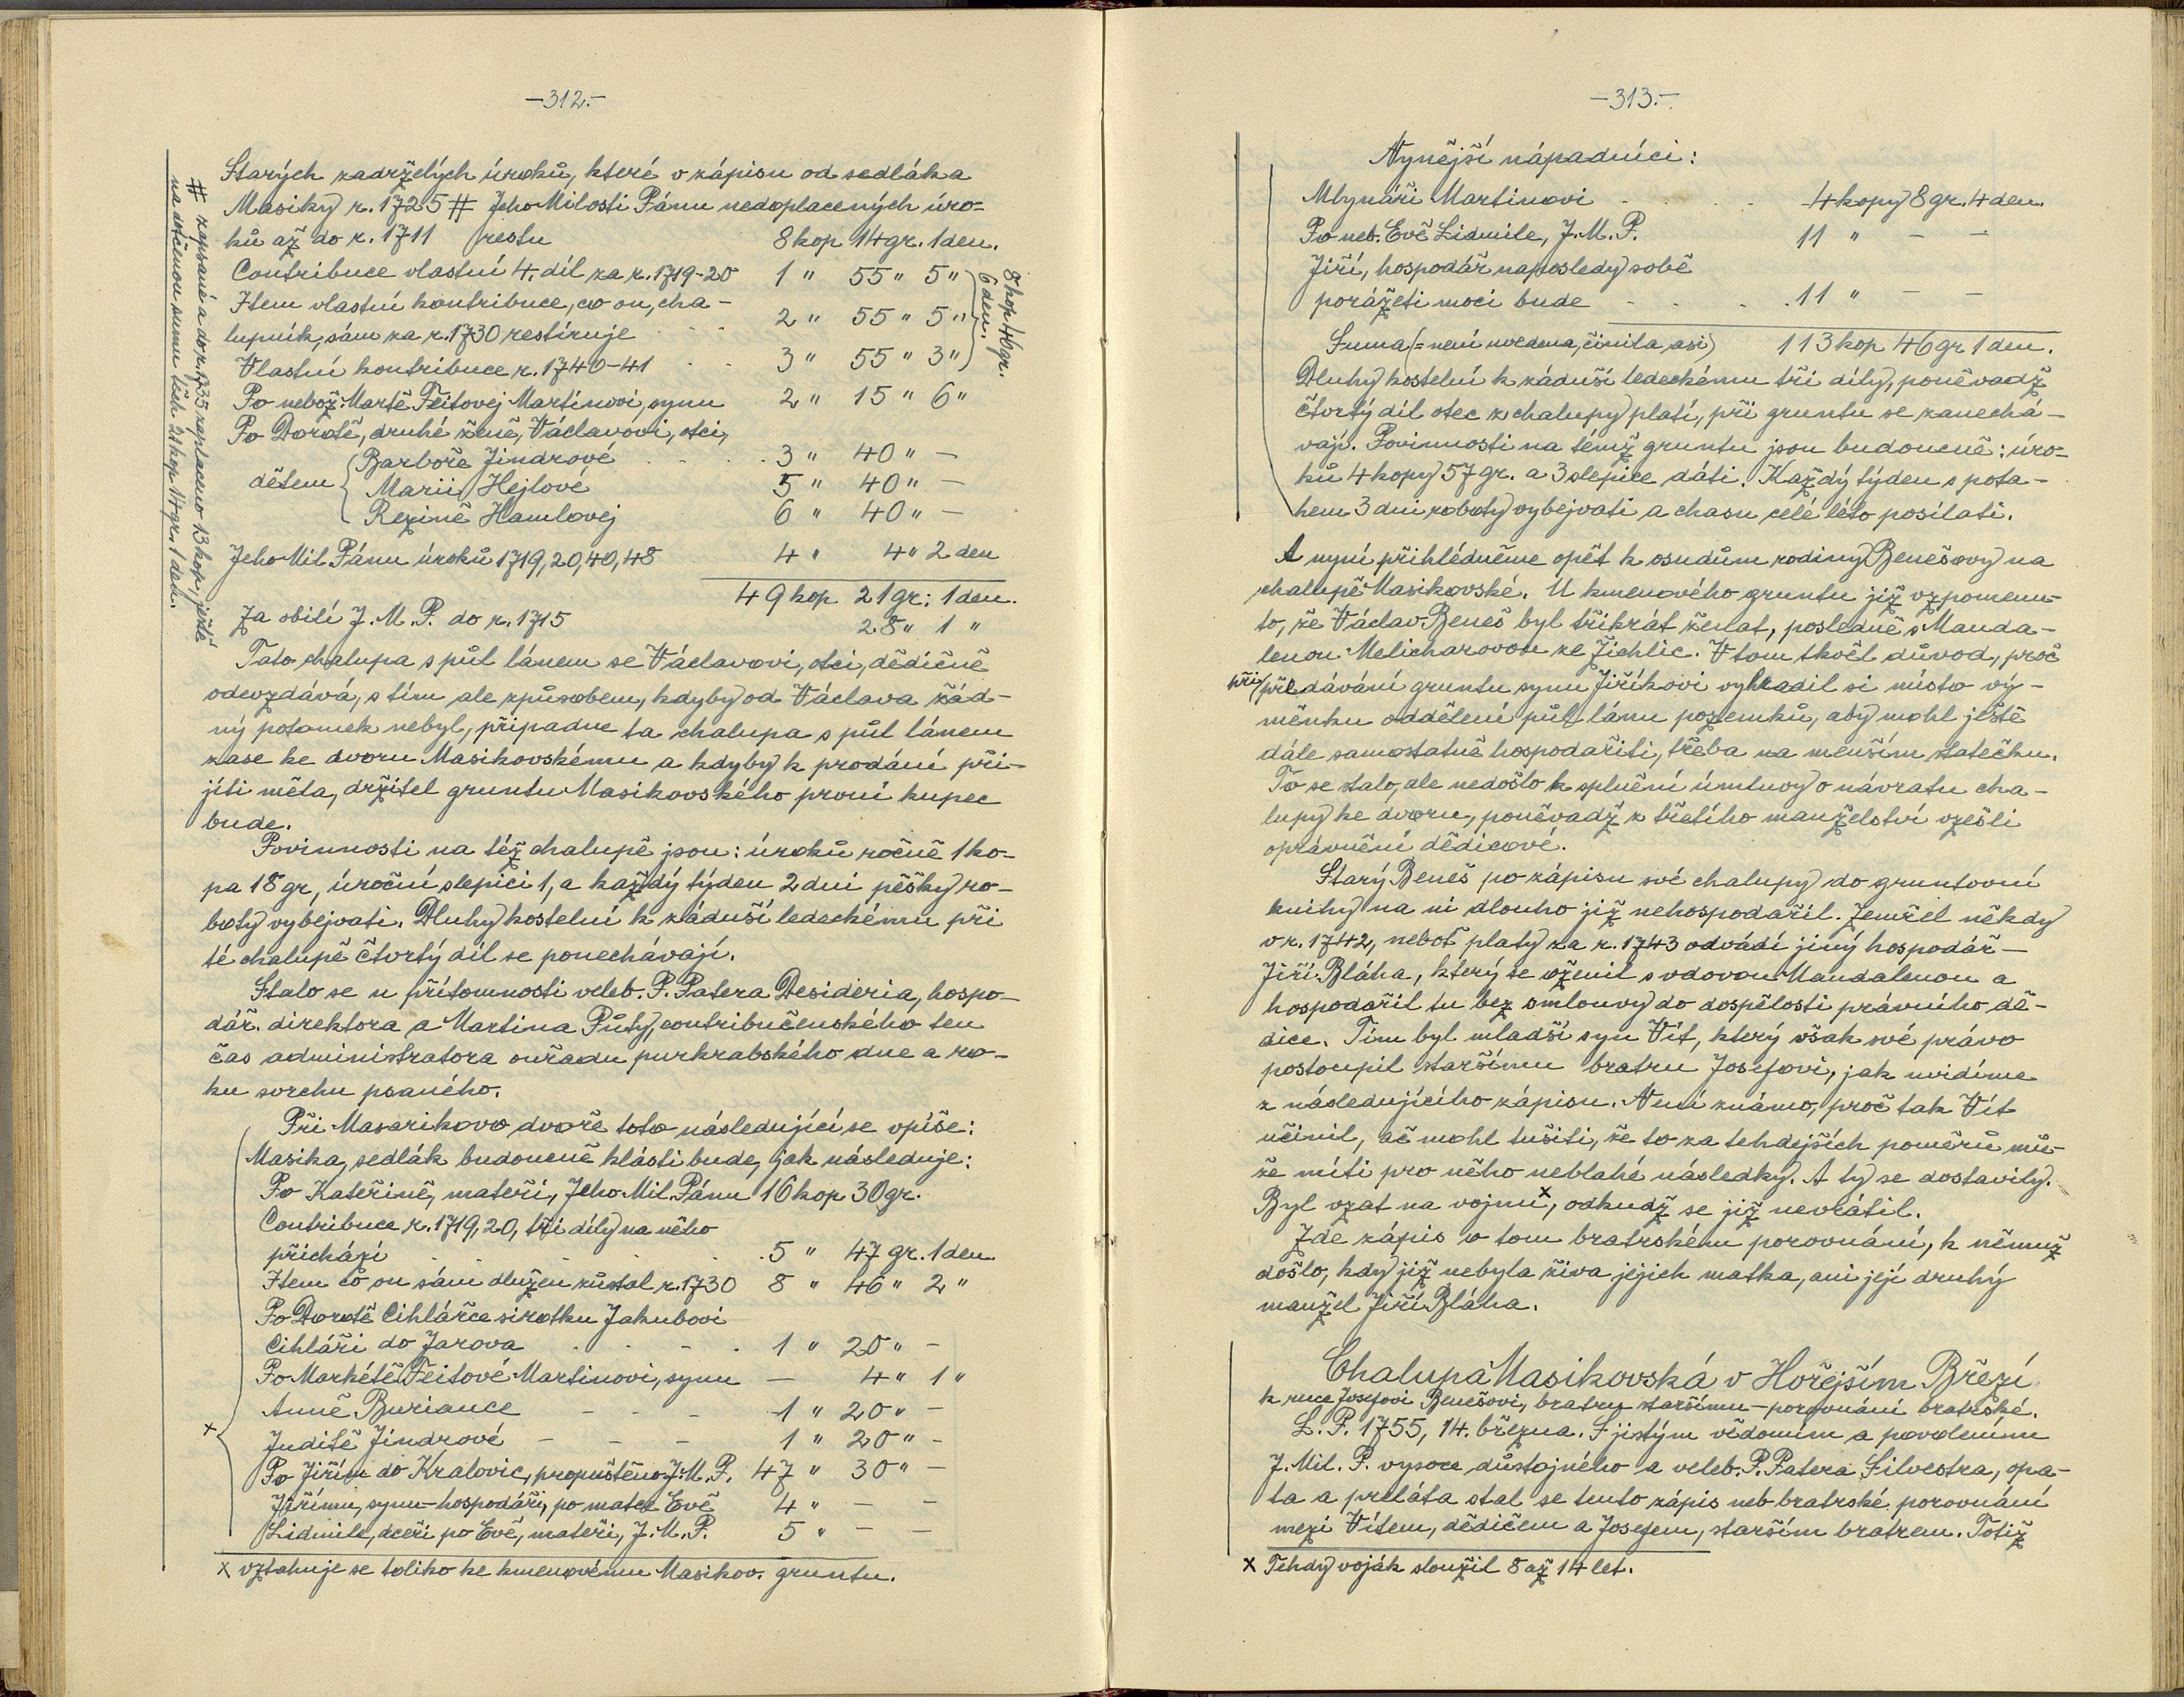 —312.—
Starých zadržených úroků, které v zápisu od sedláka
Masiky r. 1725 # Jeho Milosti Pánu nedoplacených úro-
ků až do r. 1711 restu 8 kop 14 gr. 1 den.
Contribuce vlastní 4. díl za r. 1719-20 1 " 55 " 5 "
Item vlastní kontribuce, co on, cha-
lupník, sám za r. 1730 restíruje . . 2 " 55 " 5 "
Vlastní kontribuce r. 1740-41 . . 3 " 55 " 3 "
8 kop 46 gr.
6 den.
Po nebož. Martě Feitovej Martinovi, synu 2 " 15 " 6 "
Po Dorotě, druhé ženě, Václavovi, otci,
Barboře Jindrové . . . . 3 " 40 " —
dětem Marii Hejlové 5 " 40 " —
Rezině Hamlovej 6 " 40 " —
Jeho Mil Pánu úroků 1719, 20, 40, 48 4 " 4 " 2 den
49 kop 21 gr: 1 den.
Za obilí J. M. P. do r. 1715 28 " 1 "
# zapsané a do r. 1735 zaplaceno 13 kop, ještě
na dotčenou sumu těch 21 kop 14 gr. 1 den.
Tato chalupa s půl lánem se Václavovi, otci, dědičně
odevzdává, s tím ale způsobem, kdyby od Václava žád-
ný potomek nebyl, připadne ta chalupa s půl lánem
zase ke dvoru Masikovskému a kdyby k prodání při-
jíti měla, držitel gruntu Masikovského první kupec
bude.
Povinnosti na též chalupě jsou: úroků ročně 1 ko-
pa 18 gr, úroční slepici 1, a každý týden 2 dni pěšky ro-
boty vybejvati. Dluhy kostelní k záduší ledeckému při
té chalupě čtvrtý díl se ponechávají.
Stalo se u přítomnosti veleb. P. Patera Desideria, hospo-
dář. direktora a Martina Půty, contribučenského ten
čas administratora ouřadu purkrabského dne a ro-
ku svrchu psaného.
Při Masarikovo dvoře toto následující se vpíše:
Masika, sedlák budoucně klásti bude, jak následuje:
Po Kateřině, mateři, Jeho Mil. Pánu 16 kop 30 gr.
Contribuce r. 1719, 20, tři díly na něho
přichází . . . . . 5 " 47 gr. 1 den.
Item co on sám dlužen zůstal r. 1730 8 " 46 " 2 "
Po Dorotě Cihlářce sirotku Jakubovi
Cihláři do Jarova . . - . 1 " 20 " -
Po Markétě Feitové Martinovi, synu — 4 " 1 "
Anně Buriance - - - 1 " 20 " -
x
Juditě Jindrové - - - 1 " 20 " -
Po Jiřím do Kralovic, propuštěno J. M. P. 47 " 30 " -
Jiřímu, synu-hospodáři, po mateř Evě 4 " — —
Lidmile, dceři po Evě, mateři, J. M. P. 5 " — —
x vztahuje se toliko ke kmenovému Masikov. gruntu.
—313.—
Nynější nápadníci:
Mlynáři Martinovi . . . . 4 kopy 8 gr. 4 den.
Po neb. Evě Lidmile, J. M. P. 11 " — —
Jiří, hospodář naposledy sobě
porážeti moci bude . . . . 11 " — —
Suma (= není uvedena, činila asi) 113 kop 46 gr 1 den.
Dluhy kostelní k záduší ledeckému tři díly, poněvadž
čtvrtý díl otec z chalupy platí, při gruntu se zanechá-
vají. Povinnosti na témž gruntu jsou budoucně: úro-
ků 4 kopy 57 gr. a 3 slepice dáti. Každý týden s pota-
hem 3 dni roboty vybejvati a chasu celé léto posílati.
A nyní přihlédněme opět k osudům rodiny Benešovy na
chalupě Masikovské. U kmenového gruntu již vzpomenu-
to, že Václav Beneš byl třikrát ženat, posledně s Manda-
lenou Melicharovou ze Žichlic. V tom tkvěl důvod, proč
při/předávání gruntu synu Jiříkovi vyhradil si místo vý-
měnku oddělení půl lánu pozemků, aby mohl ještě
dále samostatně hospodařiti, třeba na menším statečku.
To se stalo, ale nedošlo k splnění úmluvy o návratu cha-
lupy ke dvoru, poněvadž z třetího manželství vzešli
oprávnění dědicové.
Starý Beneš po zápisu své chalupy do gruntovní
knihy na ní dlouho již nehospodařil. Zemřel někdy
v r. 1742, neboť platy za r. 1743 odvádí jiný hospodář —
Jiří Bláha, který se oženil s vdovou Mandalenou a
hospodařil tu bez smlouvy do dospělosti právního dě-
dice. Tím byl mladší syn Vít, který však své právo
postoupil staršímu bratru Josefovi, jak uvidíme
z následujícího zápisu. Není známo, proč tak Vít
učinil, ač mohl tušiti, že to za tehdejších poměrů mů-
že míti pro něho neblahé následky. A ty se dostavily.
Byl vzat na vojnu x, odkudž se již nevrátil.
Zde zápis o tom bratrském porovnání, k němuž
došlo, kdy již nebyla živa jejich matka, ani její druhý
manžel Jiří Bláha.
Chalupa Masikovská v Hořejším Březí
k ruce Josefovi Benešovi, bratru staršímu — porovnání bratrské.
L. P. 1755, 14. března. S jistým vědomím a povolením
J. Mil. P. vysoce důstojného a veleb. P. Patera Silvestra, opa-
ta a preláta stal se tento zápis neb bratrské porovnání
mezi Vítem, dědičem a Josefem, starším bratrem. Totiž
x Tehdy voják sloužil 8 až 14 let.